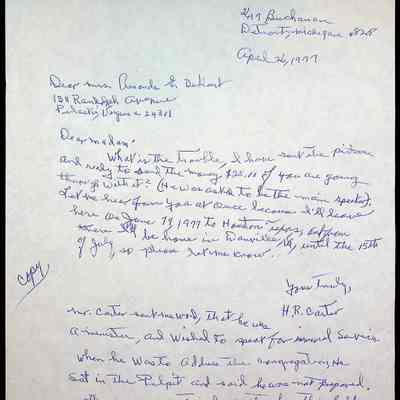 Buchanan
Detroit, Michigan
April 26, 1977
Dear Mrs.
131 Randolph Avenue
Pulaski, Virginia 24301
Dear Madam:
What is the trouble, I have sent the picture
and ready to send the money $25.00 if you are going
through with it? (He was asked to be the main speaker).
Let me hear from you at once because I'll leave
here on June 1977 to Houston
I'll be home in Danville, Va, until the 15th
of July, so please let me know.
Yours truly,
H.R. Carter
Copy
Mr. Carter sent me word, that he was
a minister, and wished to speak for Service
When he was to address the congregation, he
Sat in the Pulpit and said he was not prepared.